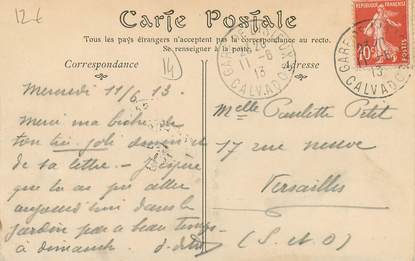 12€
Carte Postale
Tous les pays étrangers n'acceptent pas la correspondance au recto.
Se renseigner à la poste.
14
Correspondance
Adresse
GARE DE LISIEUX
11-6
13
CALVADOS
10
13
CALVADOS
Mercredi 11/6 13.
Merci ma biche de
ton très joli
de ta lettre - J'espère
que tu as pu aller
aujourd'hui dans le
jardin par ce beau temps -
à dimanche.
Melle Paulette Petit
17 rue neuve
Versailles
(S-et-O)